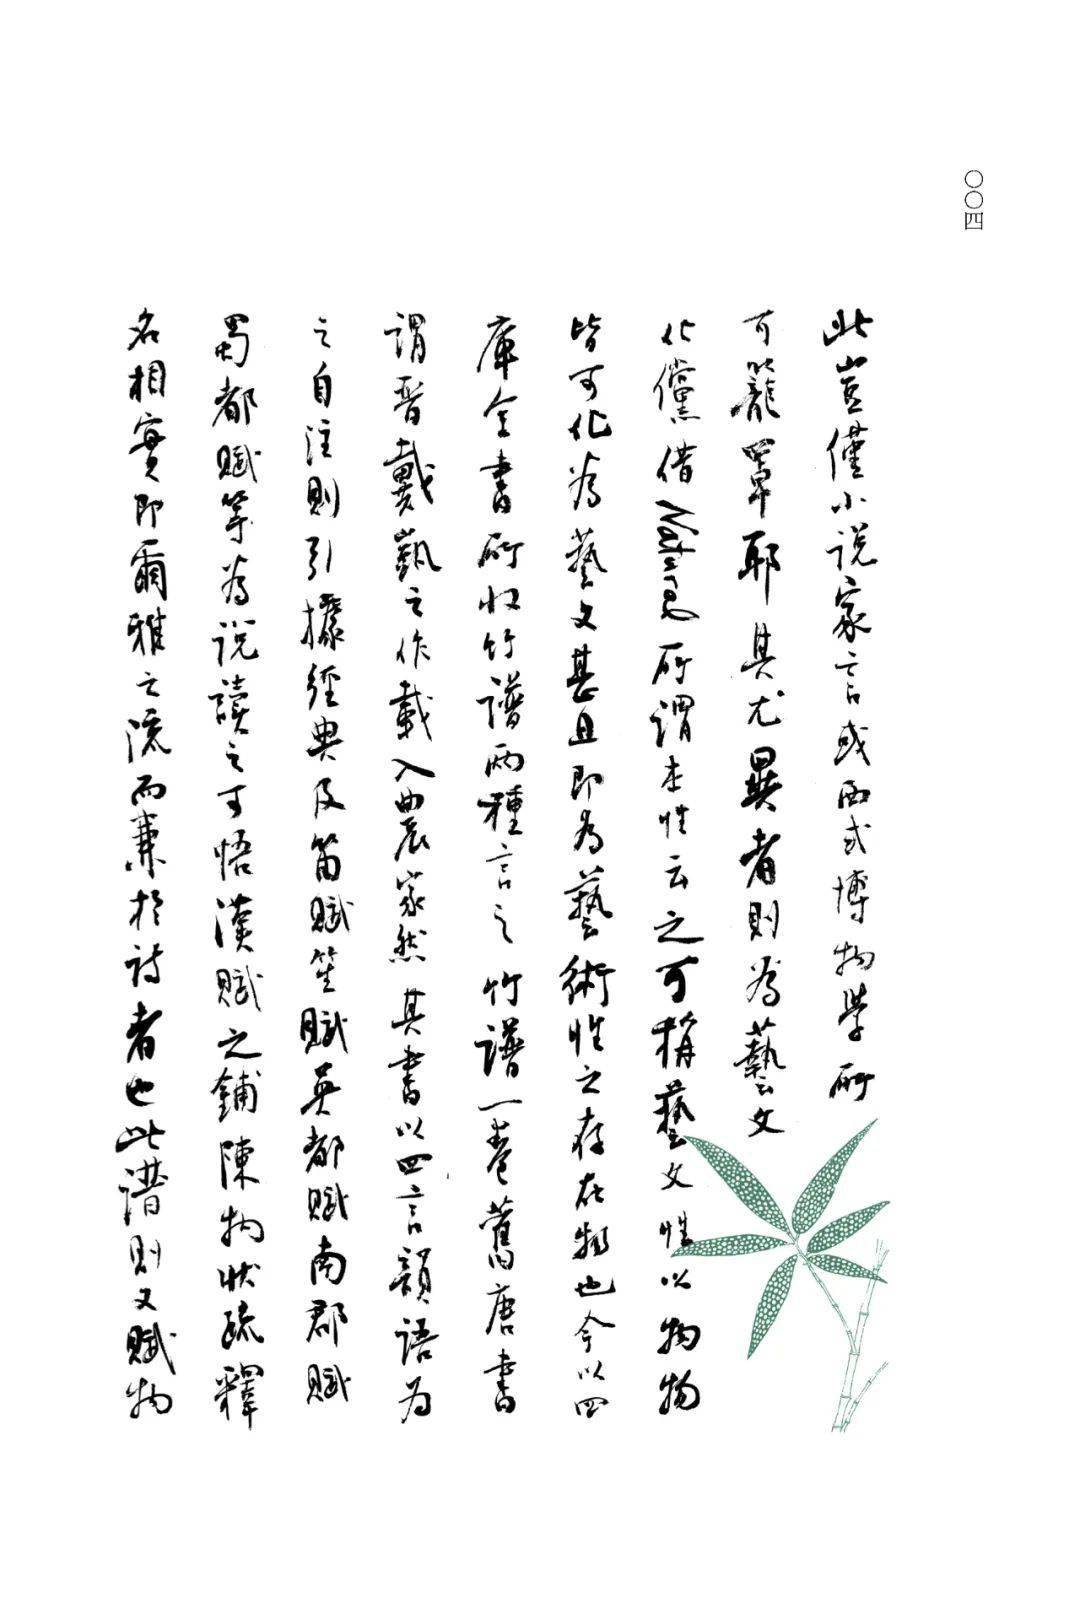 〇〇四
此豈僅小說家言或西式博物學所
可籠罩耶其尤異者則為藝文
化儻借Natural所謂本性云之可稱藝文性以物物
皆可化為藝文甚且即為藝術性之存在物也今以四
庫全書所收竹譜兩種言之竹譜一卷舊唐書
謂晉戴凱之作載入農家然其書以四言韻語為
之自注則引據經典及笛賦笙賦吳都賦南郡賦
蜀都賦等為說讀之可悟漢賦之鋪陳物狀疏釋
名相實即爾雅之流而兼於詩者也此譜則又賦物